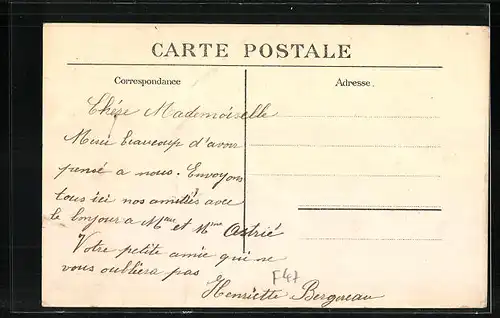 CARTE POSTALE
Correspondance
Adresse.
Chère Mademoiselle
Merci beaucoup d'avoir
pensé a nous. Envoyons
tous ici nos amitiés avec
le bonjour a Mr et Mme Astrié
Votre petite amie qui ne
vous oubliera pas
F47
Henriette Bergereau